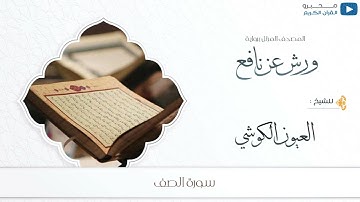 محبرو
القرآن الكريم
المصحف المنزل برواية
ورش عن نافع
للشيخ :
العيون الكوشي
سورة الصف